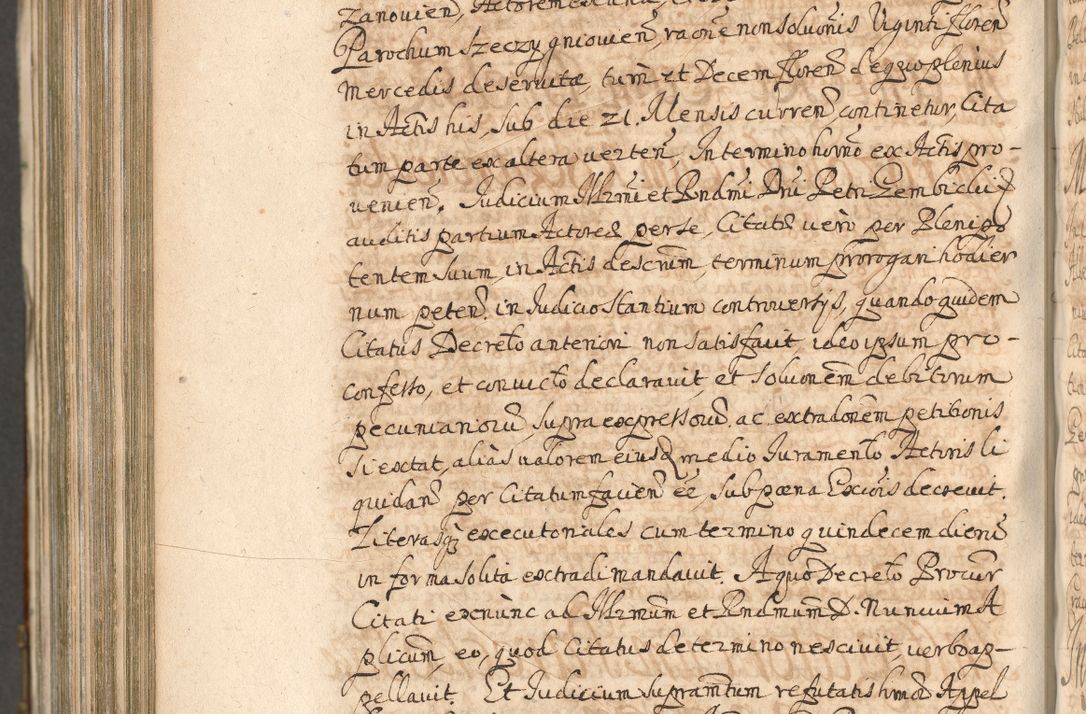 zanovien, Actorem ex una, et
Parochum Szeczygniovien, raone non soluõnis Viginti floren
mercedis deservitæ, tum et Decem floren de quo plenius
in Actis his, sub die 21. Mensis curren, continetur, Cita
tum parte ex altera verten, In termino horno ex Actis pro-
venien. Judicium Illrmi et Rndmi Dni Petri Gembicki
auditis partium Actore per se, Citato vero per Plenipo
tentem suum, in Actis descrum, terminum prorogari hodier
num peten. in Judicio Stantium controversijs, quandoquidem
Citatus Decreto anteriori non satisfacit ideo ipsum pro-
confesso, et convicto declaravit, et soluonem debitorum
pecuniarioru, supra expressoru ac extradonem petitionis
si extat, alias valorem eiusq medio Juramento Actoris li
quidan per Citatum facien ee, sub pæna Excõis decrevit.
Literasq executoriales cum termino quindecem dieru
in forma solita extradi mandavit. A quo Decreto Procur
Citati exnunc ad Illrmum et Rndmum D. Nuncium A
plicum, eo, quod Citatus de termino nescivit, verbo ap-
pellavit. Et Judicium supramtum refutatis hmoi Appel